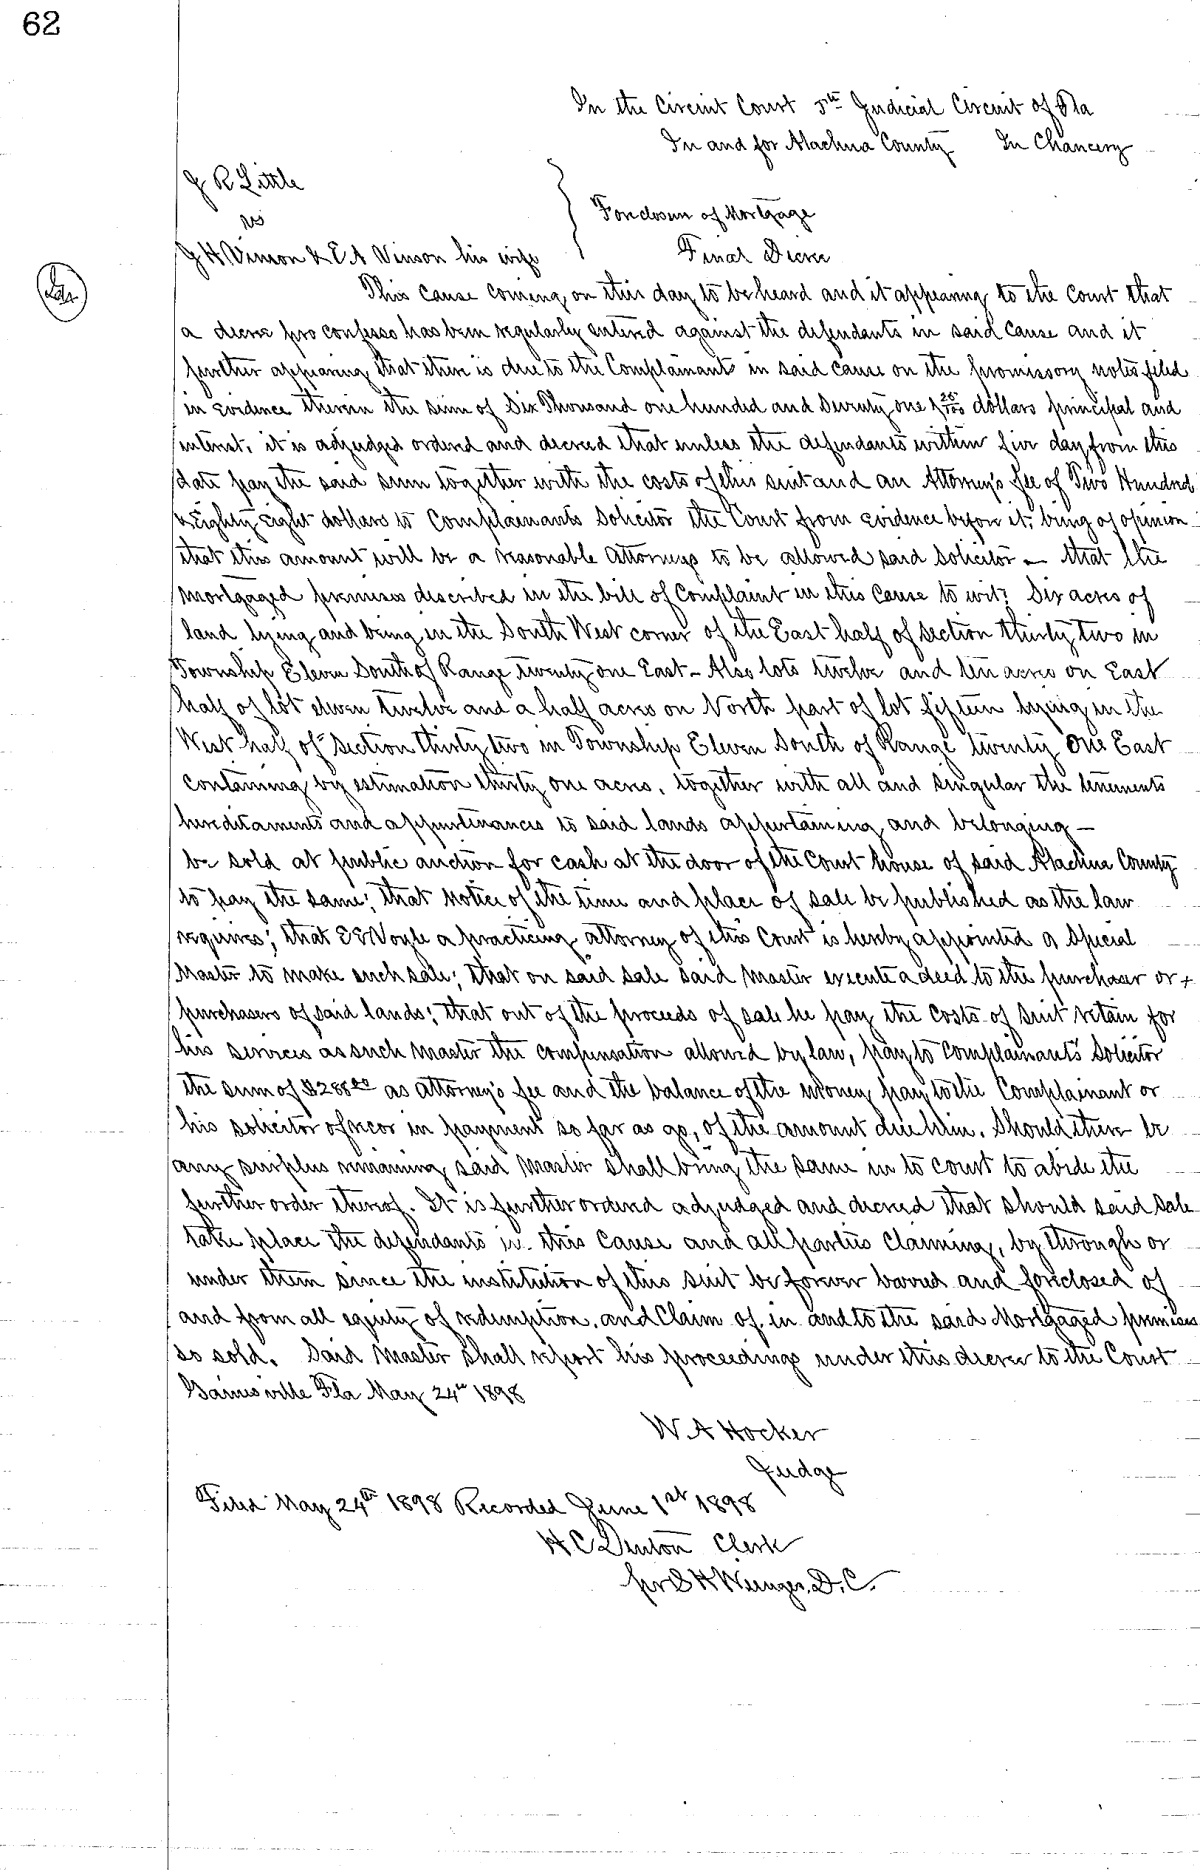 62
In the Circuit Court 5th Judicial Circuit of Fla
In and for Alachua County In Chancery
J R Little
vs
J H Vinson & E A Vinson his wife
Foreclosure of Mortgage
Final Decree
This cause coming on this day to be heard and it appearing to the Court that
a decree pro confesso has been regularly entered against the defendants in said cause and it
further appearing that there is due to the Complainant in said cause on the promissory notes filed
in evidence therein the sum of Six Thousand one hundred and Seventy one & 25/100 dollars principal and
interest, it is adjudged ordered and decreed that unless the defendants within five day from this
date pay the said sum together with the costs of this suit and an Attorney's fee of Two Hundred
& Eighty Eight dollars to Complainants Solicitor the Court from evidence before it; being of opinion
that this amount will be a reasonable Attorneys to be allowed said solicitor — that the
mortgaged premises described in the bill of Complaint in this cause to wit: Six acres of
land lying and being in the South West corner of the East half of section thirty two in
Township Eleven South of Range twenty one East – Also lots twelve and ten acres on East
half of lot eleven twelve and a half acres on North part of lot fifteen lying in the
West half of Section thirty two in Township Eleven South of Range twenty one East
containing by estimation thirty one acres, together with all and singular the tenements
hereditaments and appurtenances to said lands appertaining and belonging —
be sold at public auction for cash at the door of the Court house of said Alachua County
to pay the same; that notice of the time and place of sale be published as the law
requires; that E E Voyle a practicing attorney of this Court is hereby appointed a Special
Master to make such sale; that on said sale said master execute a deed to the purchaser or +
purchasers of said lands; that out of the proceeds of sale he pay the costs of suit retain for
his services as such master the compensation allowed by law, pay to complainants Solicitor
the sum of $288.00 as attorney's fee and the balance of the money pay to the Complainant or
his solicitor of record in payment so far as go, of the amount due him. Should there be
any surplus remaining said Master shall bring the same in to court to abide the
further order thereof. It is further ordered adjudged and decreed that should said sale
take place the defendants in this cause and all parties claiming, by through or
under them since the institution of this suit be forever barred and foreclosed of
and from all equity of redemption, and Claim of, in and to the said Mortgaged premises
so sold. Said Master shall report his proceedings under this decree to the Court
Gainesville Fla May 24th 1898
W A Hocker
Judge
Filed May 24th 1898 Recorded June 1st 1898
H C Denton Clerk
per S H Wienges, D.C.